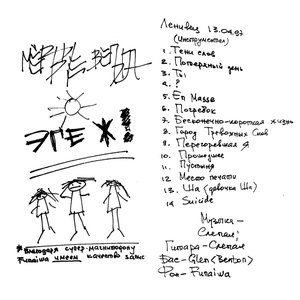 ЭГЕ Ж!
* Благодаря супер-магнитофону
Funaiwa имеем качество запис
Ленивец 13.04.97
(Инструментал)
1. Тени слов
2. Потерянный день
3. Ты
4. ?
5. En Masse
6. Погребок
7. Бесконечно-короткая жизнь
8. Город Тревожных Снов
9. Перегоревшая Я
10. Прошедшее
11. Пустыня
12. Место печати
13. Ша (девочка Ша)
14. Suicide
Музыка-
Слепая;
Гитара-Слепая
Бас-Glen(Benton)
Фон-Funaiwa